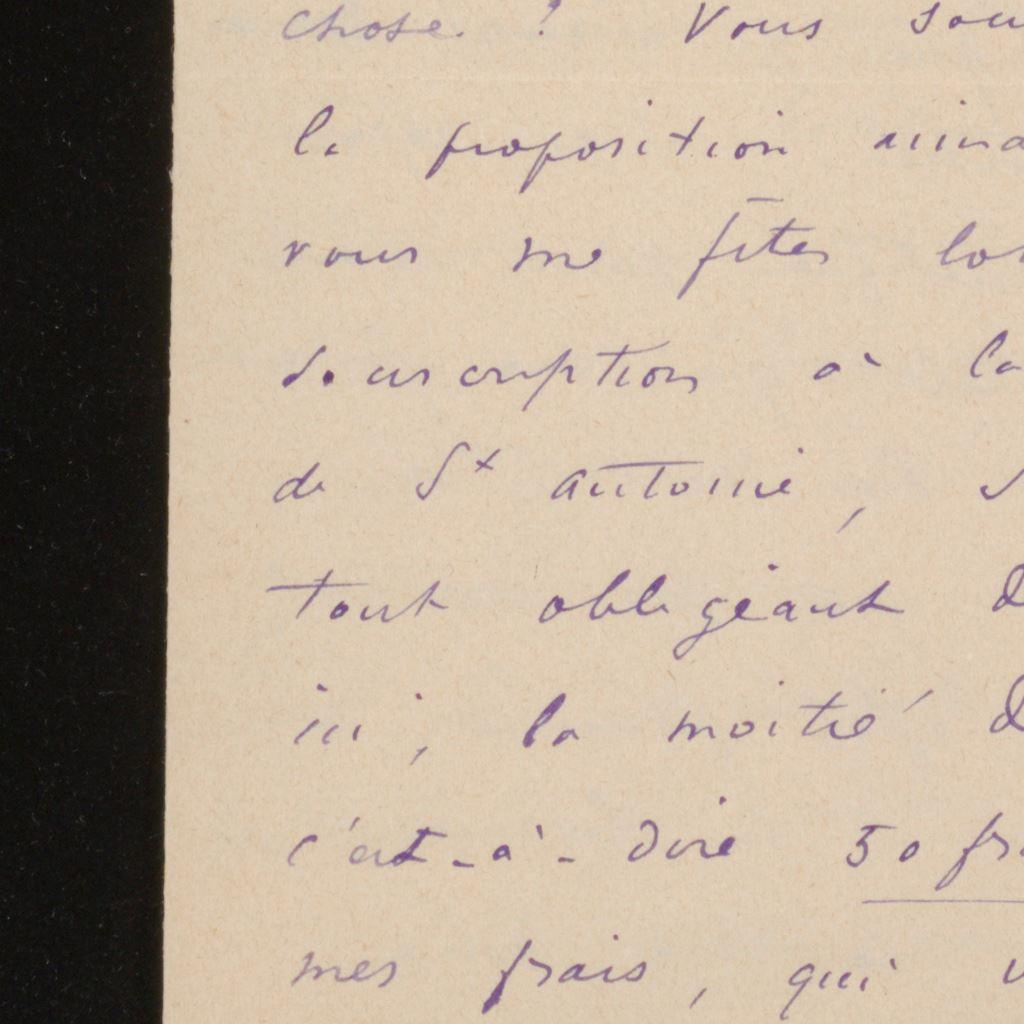 chose ? Vous sou
la proposition aima
vous me fîtes lor
souscription à la
de St Antoine, s
tout obligeant d
ici, la moitié d
c'est-à-dire 50 fra
mes frais, qui v